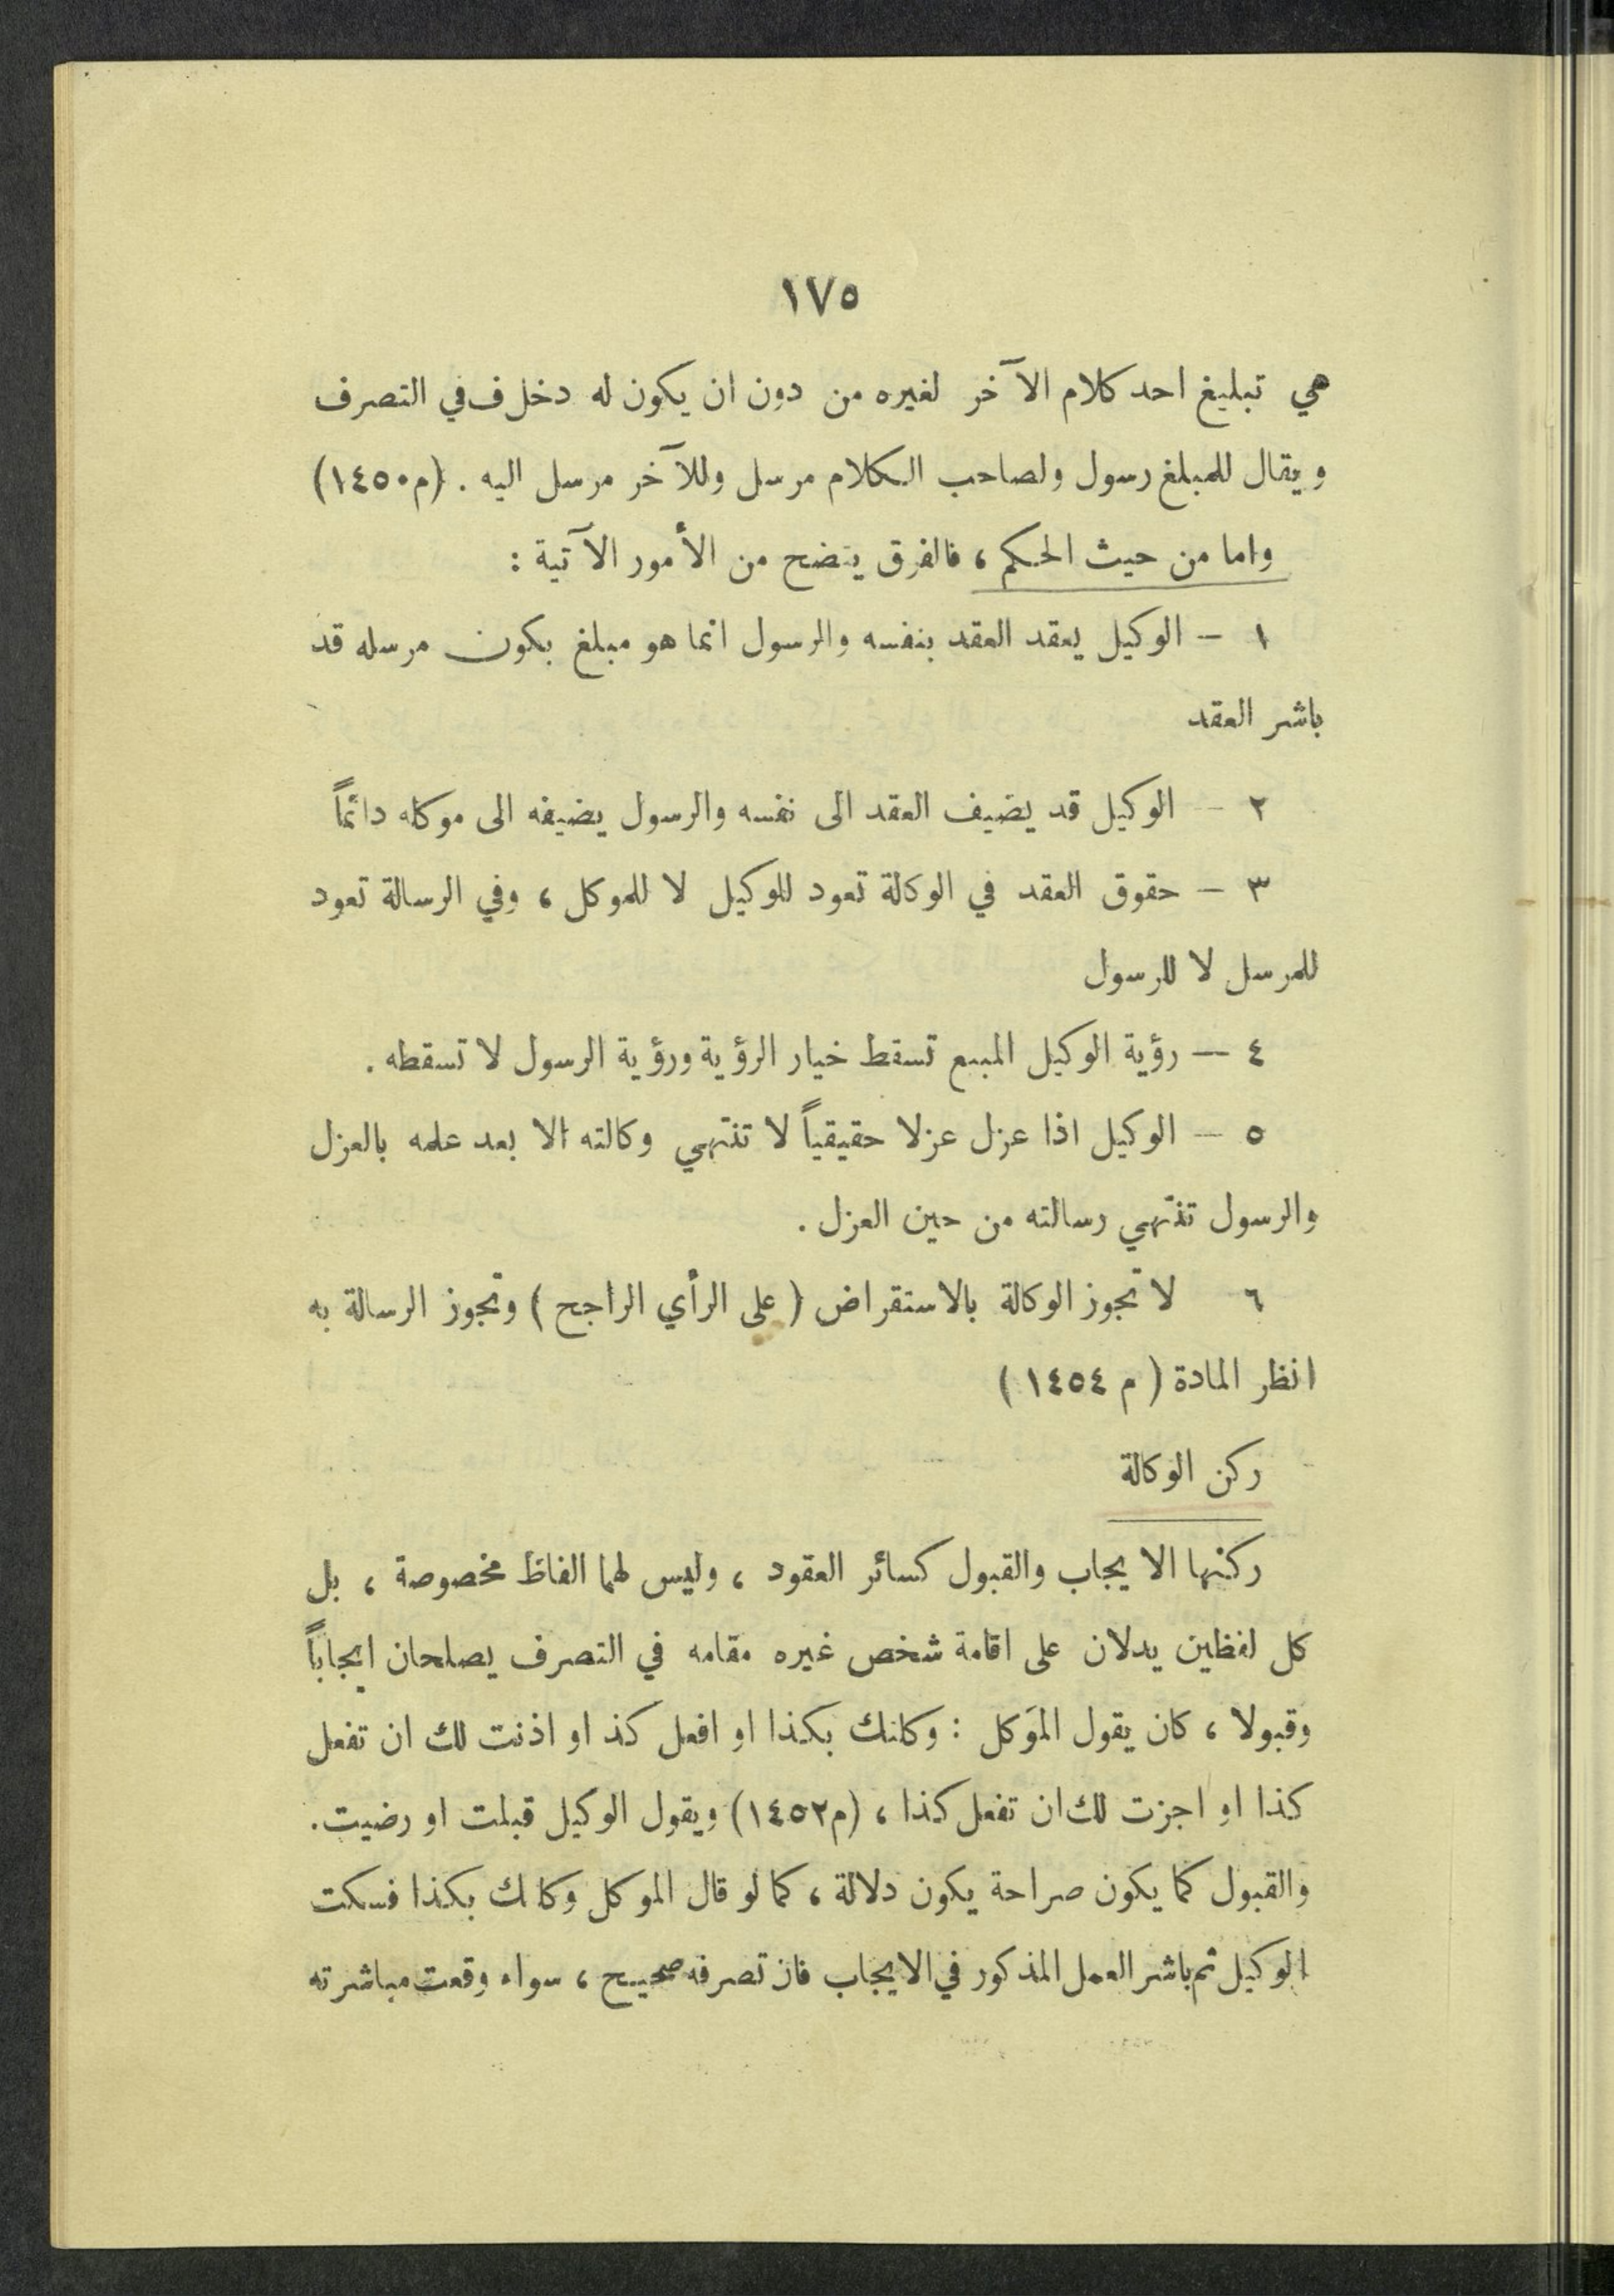 ١٧٥
هي تبليغ احد كلام الآخر لغيره من دون ان يكون له دخل ف في التصرف
ويقال للمبلغ رسول ولصاحب الكلام مرسل وللآخر مرسل اليه . (م١٤٥٠)
واما من حيث الحكم ، فالفرق يتضح من الأمور الآتية :
١ – الوكيل يعقد العقد بنفسه والرسول انما هو مبلغ بكون مرسله قد
باشر العقد
٢ – الوكيل قد يضيف العقد الى نفسه والرسول يضيفه الى موكله دائماً
٣ – حقوق العقد في الوكالة تعود للوكيل لا للموكل ، وفي الرسالة تعود
للمرسل لا للرسول
٤ – رؤية الوكيل المبيع تسقط خيار الرؤية ورؤية الرسول لا تسقطه .
٥ – الوكيل اذا عزل عزلا حقيقياً لا تنتهي وكالته الا بعد علمه بالعزل
والرسول تنتهي رسالته من حين العزل .
٦ لا تجوز الوكالة بالاستقراض ( على الرأي الراجح ) وتجوز الرسالة به
انظر المادة ( م ١٤٥٤ )
ركن الوكالة
ركنها الايجاب والقبول كسائر العقود ، وليس لهما الفاظ مخصوصة ، بل
كل لفظين يدلان على اقامة شخص غيره مقامه في التصرف يصلحان ايجاباً
وقبولا ، كان يقول الموَكل : وكلتك بكذا او افعل كذ او اذنت لك ان تفعل
كذا او اجزت لك ان تفعل كذا ، (م١٤٥٢) ويقول الوكيل قبلت او رضيت .
والقبول كما يكون صراحة يكون دلالة ، كما لو قال الموكل وكلتك بكذا فسكت
الوكيل ثم باشر العمل المذكور في الايجاب فان تصرفه صحيح ، سواء وقعت مباشرته